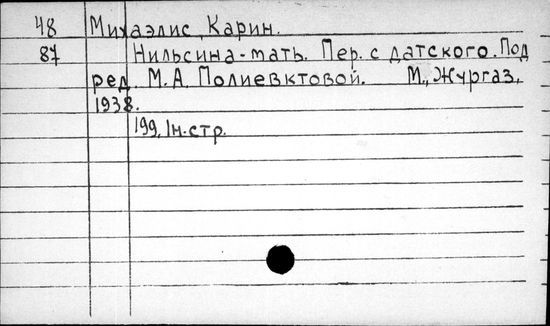 48 Михаэлис, Карин.
87 Нильсина-мать. Пер. с датского. Под
ред. М.А. Полиевктовой. М., Жургаз,
1938.
199, Iн.стр.